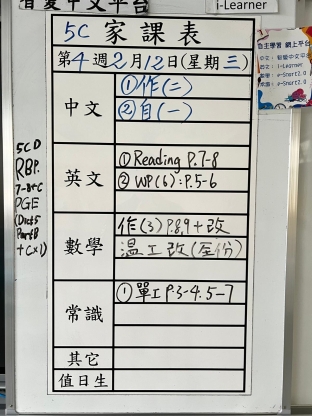 智愛中文平台
i-Learner
自主學習 網上平台
5C 家課表
第4週2月12日(星期三)
中文
①作(二)
②自(一)
英文
① Reading P.7-8
② WP(6):P.5-6
數學
作(3)P.8,9+改
溫工改(至份)
常識
①單工P.3-4.5-7
其它
值日生
5C D
RBP.
7-8+C
PGE
(Dict5
Part B
+C×1)